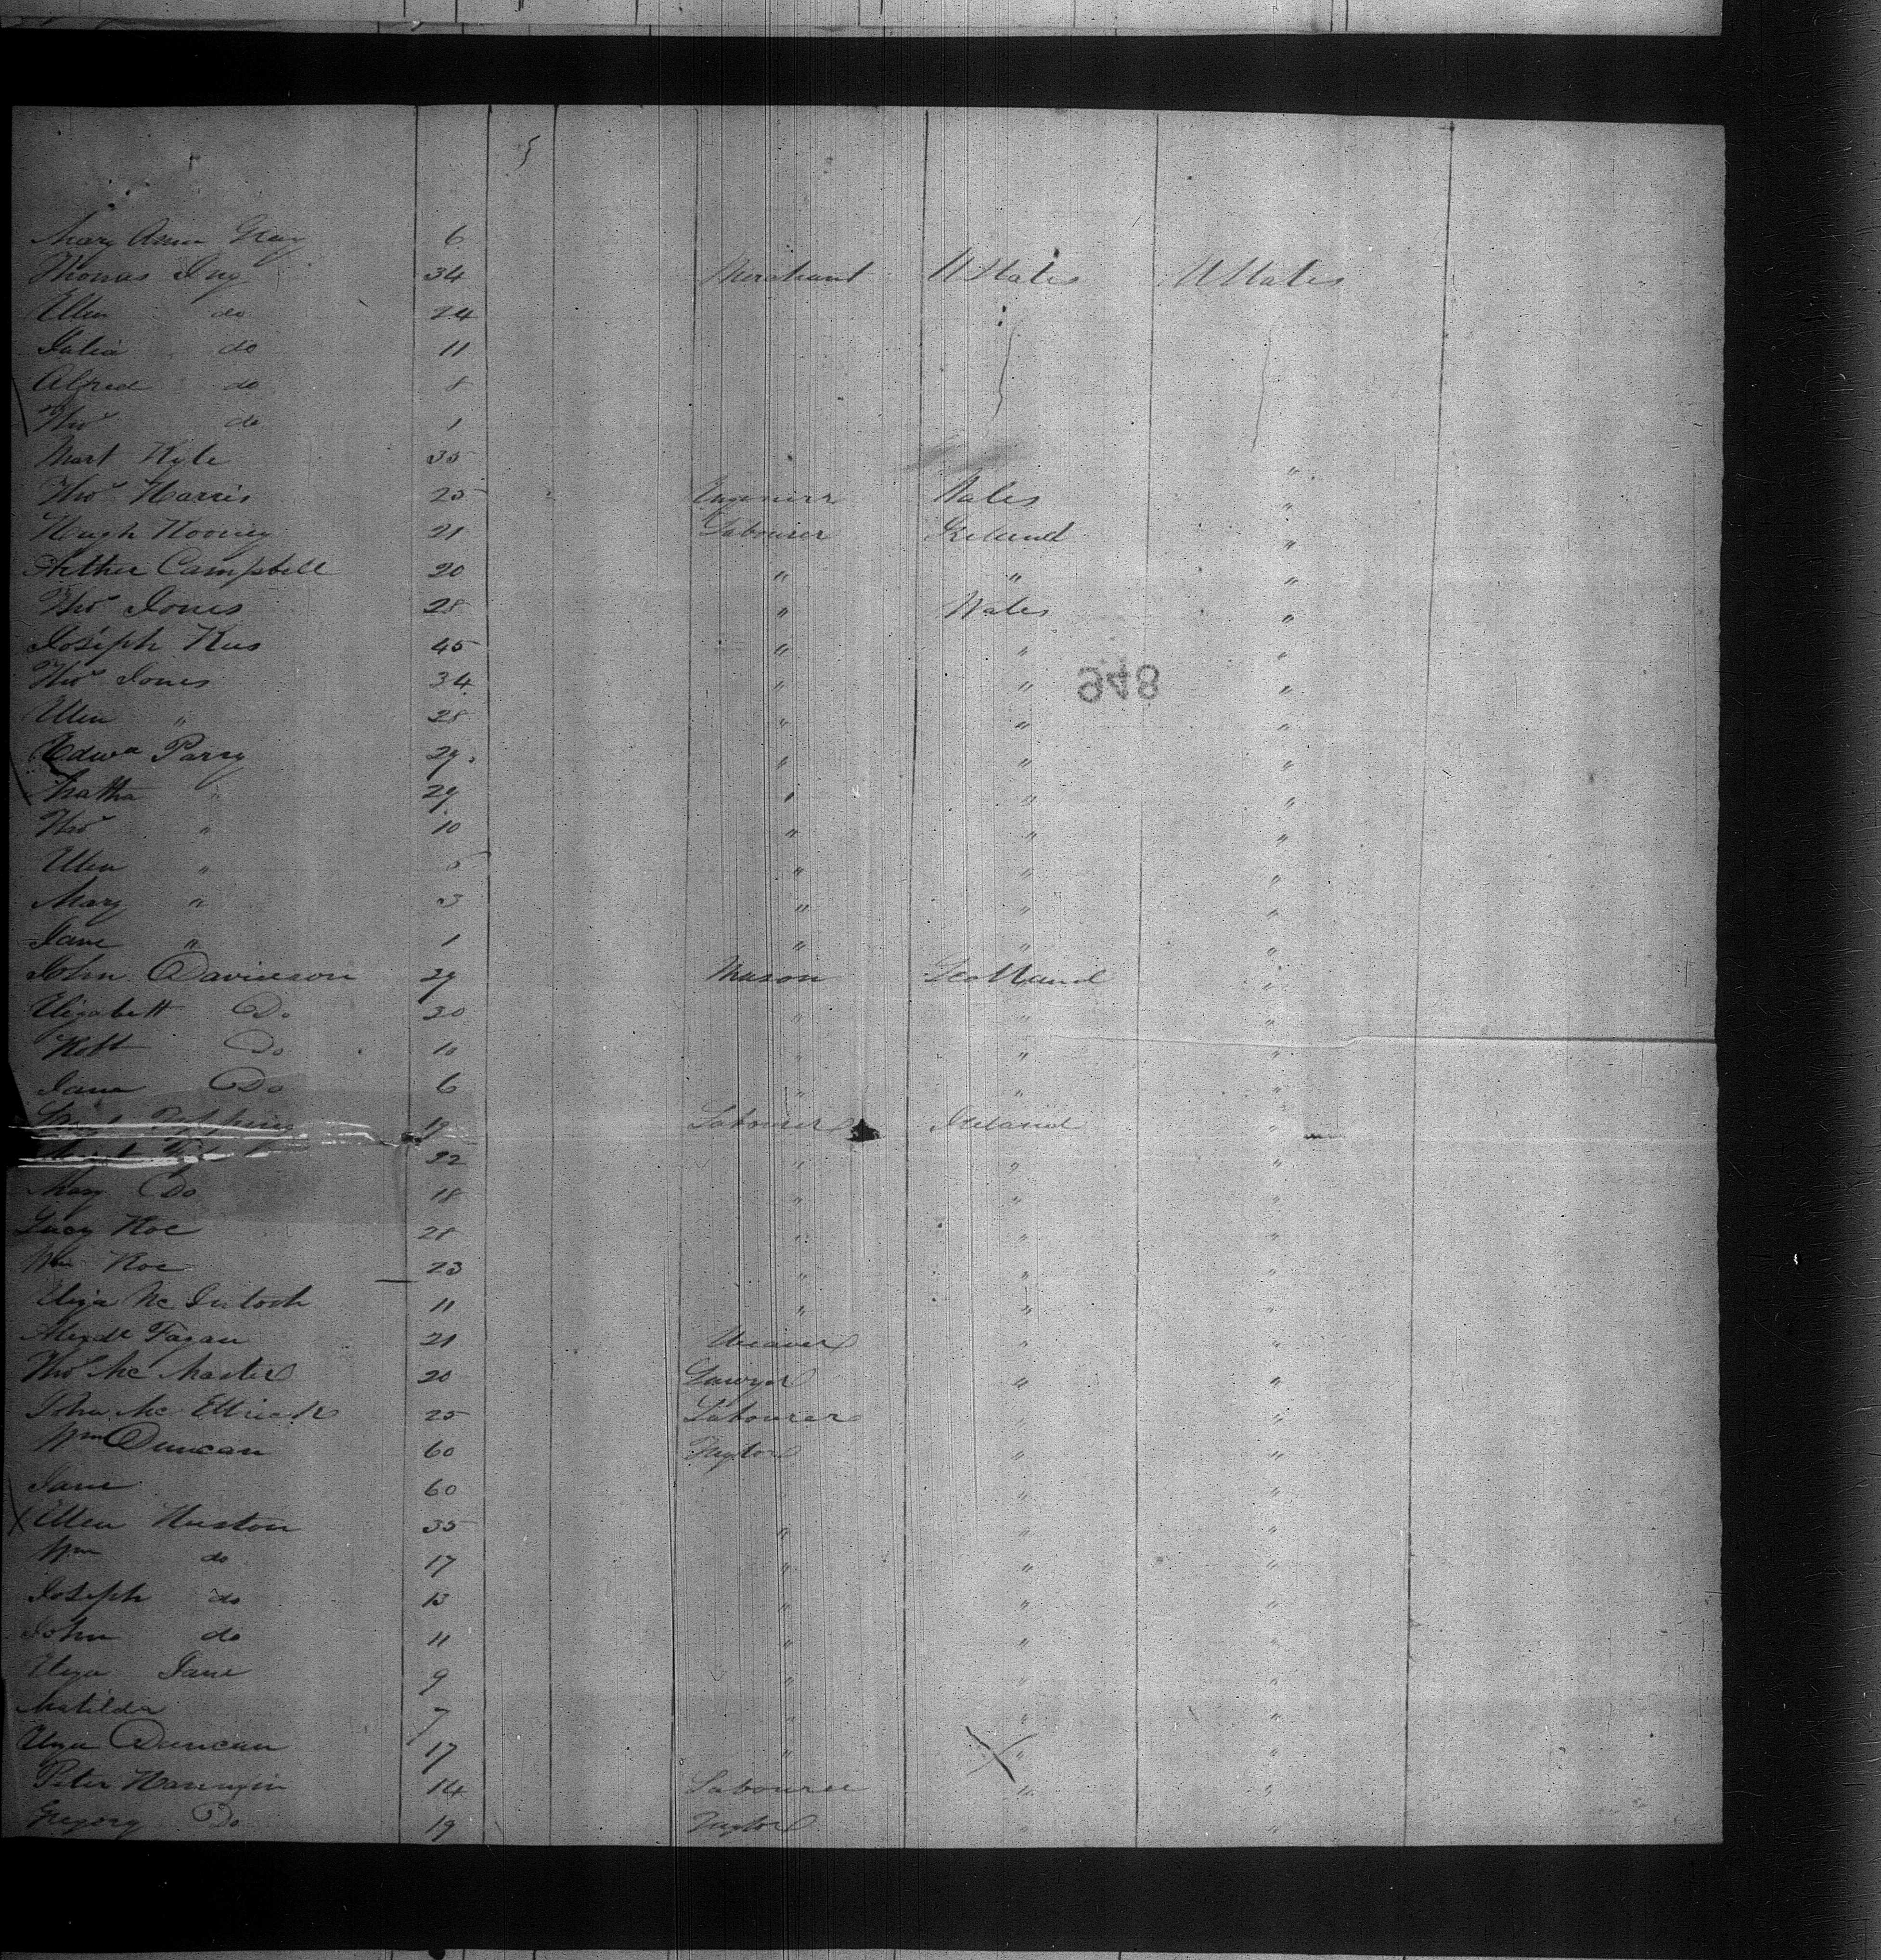 Mary Ann Gray 6
Thomas Ivy 34 Merchant U States U States
Ellen do 24
Julia do 11
Alfred do 8
Thos do 1
Mart Kyle 35 "
Thos Harris 25 Engineer Wales "
Hugh Rooney 21 Labourer Ireland "
Arther Campbell 20 " " "
Thos Jones 28 " Wales "
Joseph Rees 45 " " "
Thos Jones 34 " " "
948
Ellen " 28 " " "
Edwd Parry 29 " " "
29 " " "
Thos " 10 " " "
Ellen " 5 " " "
Mary " 3 " " "
Jane " 1 " " "
John Davidson 29 Mason Scotland "
Elizabeth Do 30 " " "
Robt Do 10 " " "
Jane Do 6 " " "
19 Labourer Ireland "
22 " " "
Mary Do 18 " " "
Lucy Roe 28 " " "
Wm Roe 23 " " "
Eliza Mc Intosh 11 " " "
Alexdr Fagan 21 Weaver " "
Thos Mc Master 20 Sawyer " "
John Mc 25 Labourer " "
Wm Duncan 60 Taylor " "
Jane 60 " "
Ellen Huston 35 " " "
Wm do 17 " " "
Joseph do 13 " " "
John do 11 " " "
Eliza Jane 9 " " "
Matilda 7 " " "
Eliza Duncan 17 " " "
Peter 14 Labourer " "
Gregory Do 19 Taylor " "